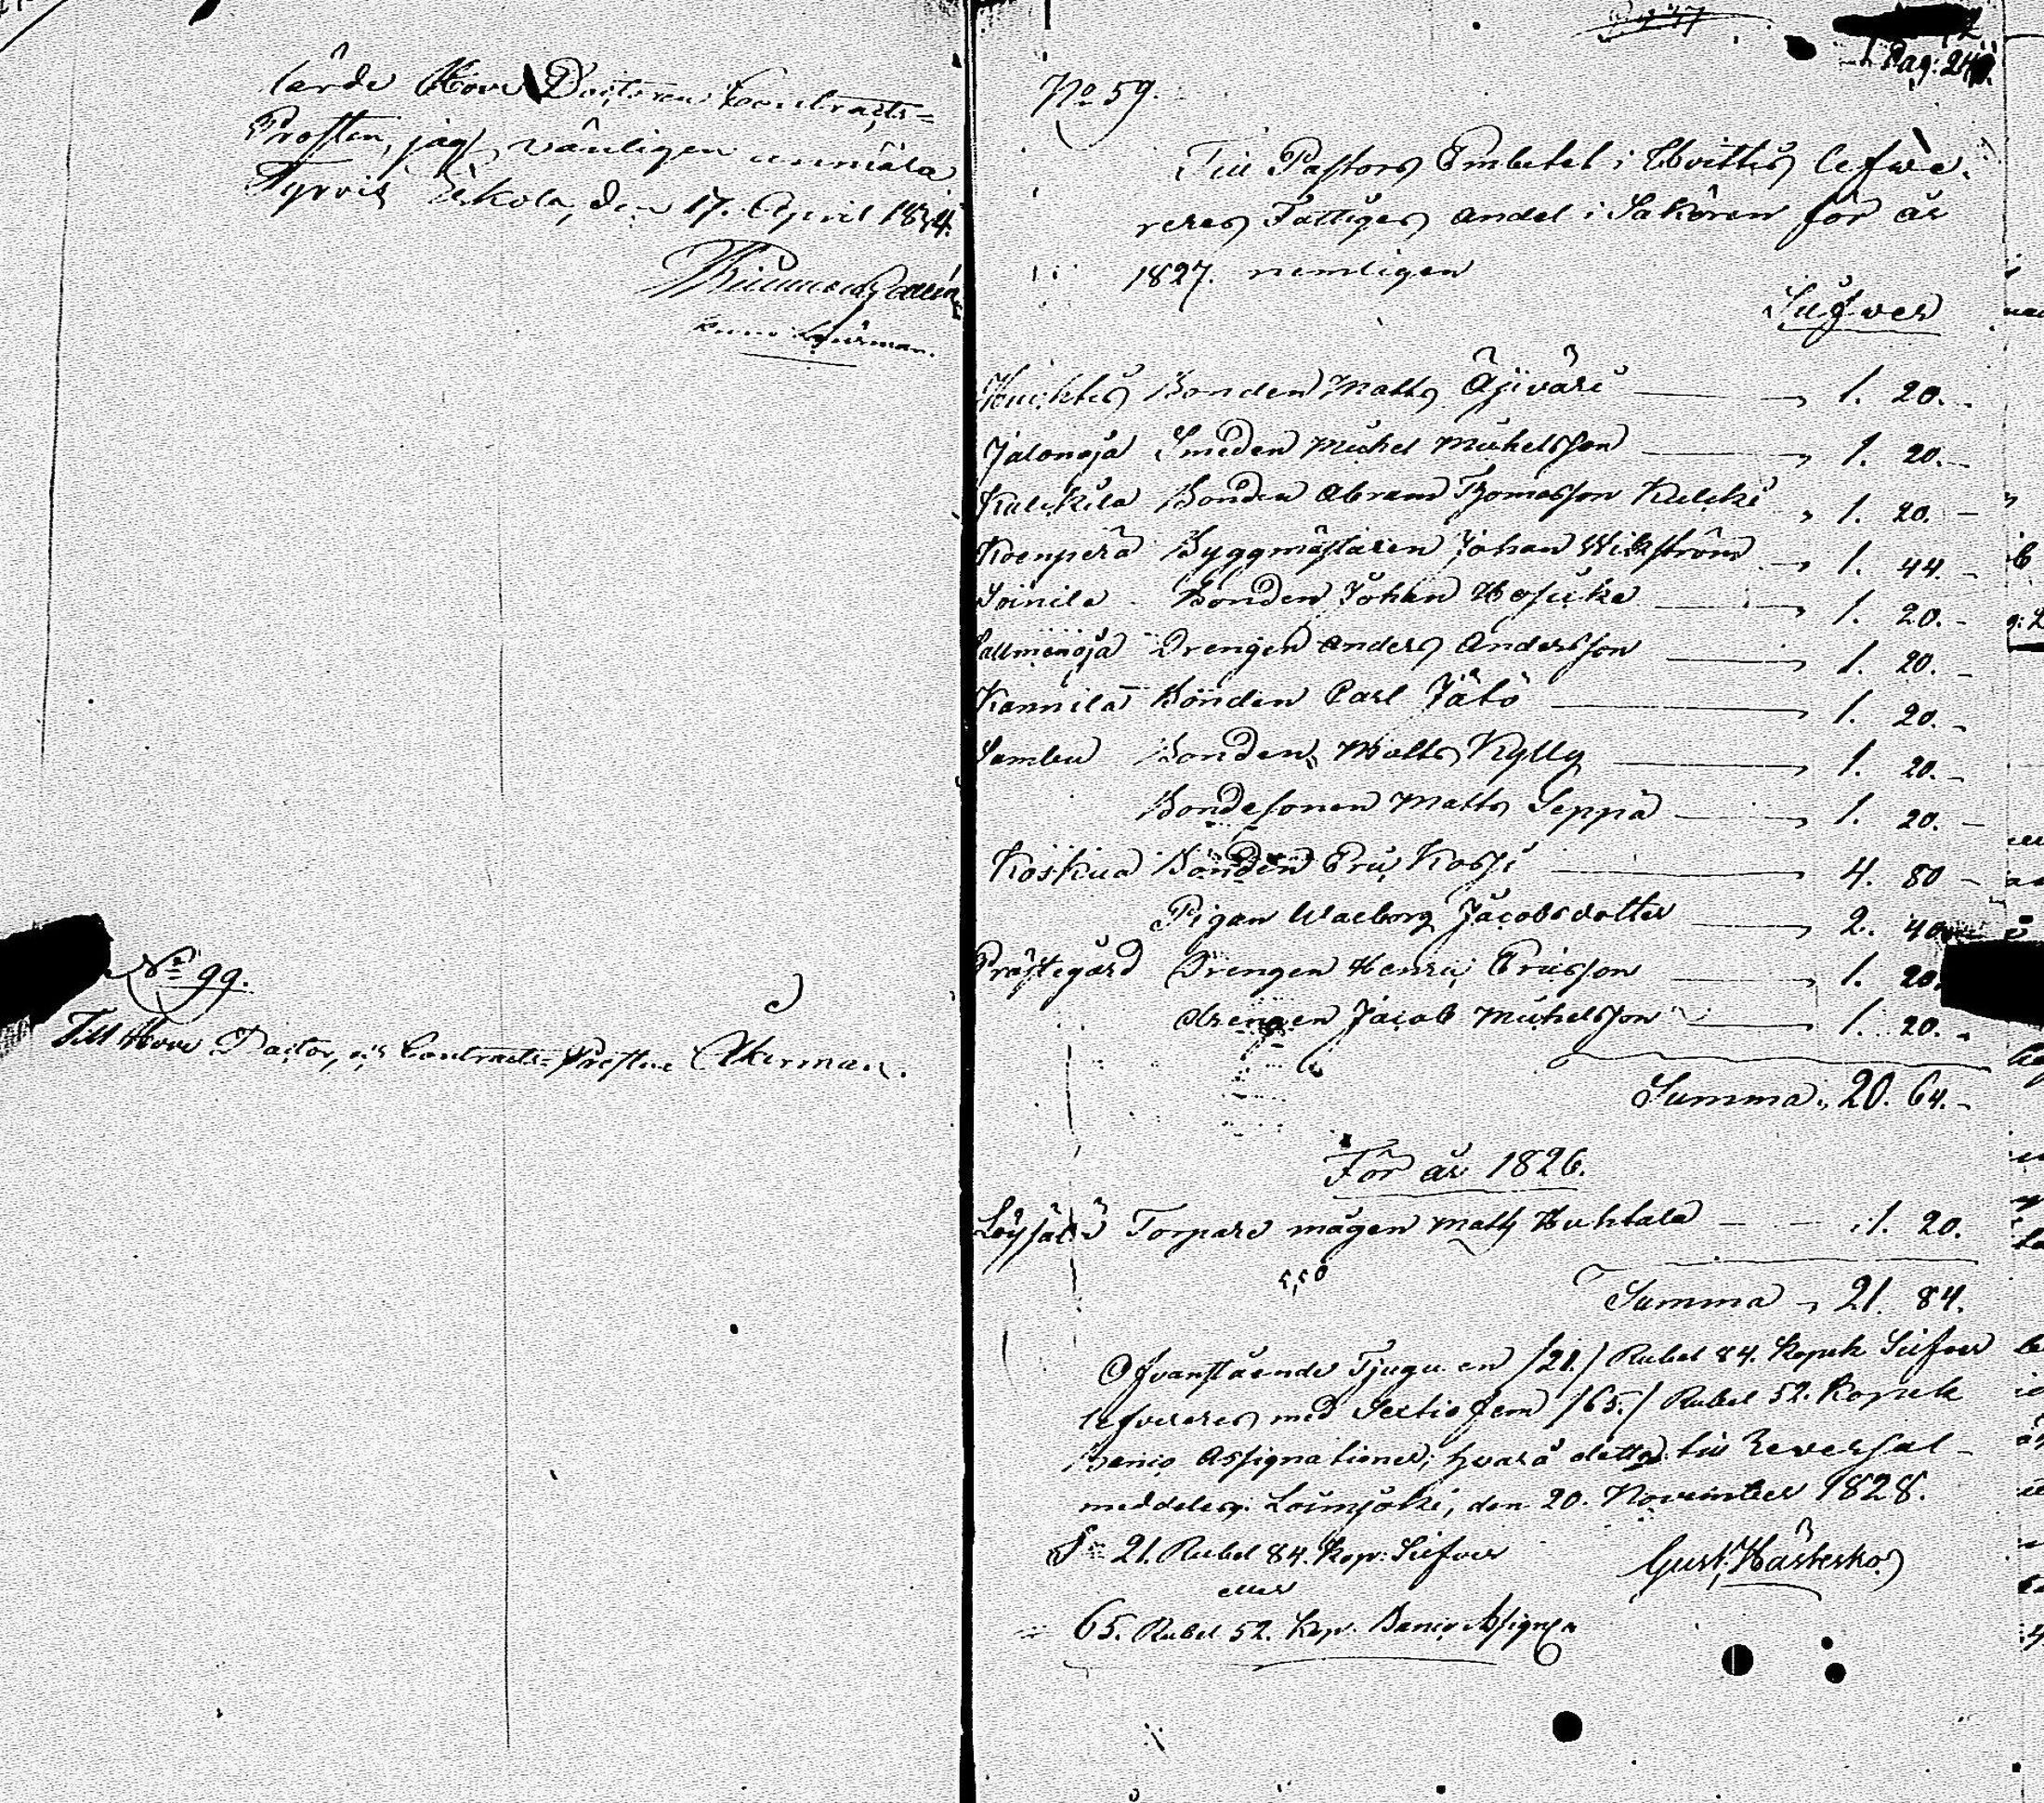 lärde Herr Doctoren Contracts-
Prosten, jag vänligen anmäla
Tyrvis Eskola, den 17. April 1834.
No 99.
Till Herr Doctor, och Contracts-Prosten Åkerman.
Pag: 24
No 59.
Till Pastors Embetet i Hvittis lefwe-
reres Fattiges andel i Sakören för år
1827. nemligen
Silfver
Huichtis Bonden Matts Äjiväri 1. 20.
Jalonoja Smeden Michel Michelsson 1. 20.
Kalckila Bonden Abram Thomasson Kulcki 1. 20.
Koenperä Byggmästaren Johan Wikström 1. 44.
Soinila Bonden Johan Hosicka 1. 20.
Sallmenoja Drengen Anders Andersson 1. 20.
Kannila Bonden Carl Jätö 1. 20.
Sambu Bonden Matts Kylly 1. 20.
Bondesonen Matts Seppä 1. 20.
Koskua Bonden Eric Kossi 4. 80
Pigan Walborg Jacobsdotter 2. 40
Prästegård Drengen Henric Ericsson 1. 20.
Drengen Jacob Michelsson 1. 20.
Summa 20. 64.
För år 1826.
Torpare mågen Matts Huhtala 1. 20.
Summa 21. 84.
Ofvanstående Tjugu en /21./ Rubel 84. Kopek Silfver
lefvereres med Sextio fem /65./ Rubel 52. Kopek
Banco Assignationer, hvarå detta till Reversal
meddeles. Loimjoki, den 20. November 1828.
S:a 21. Rubel 84. Kop: Silfver Gust. Hästesko
eller
65. Rubel 52. Kop. Banco Assign:r